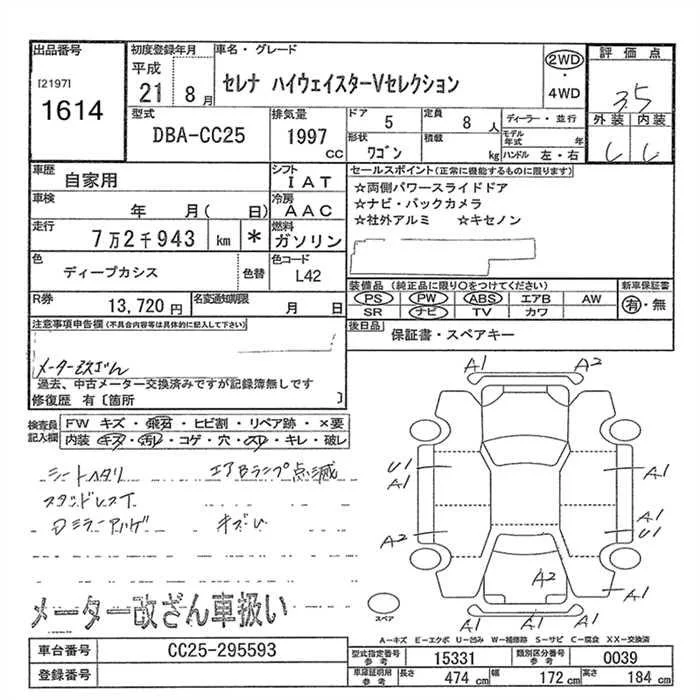 出品番号
[2197]
1614
初度登録年月
平成
21年 8月
車名・グレード
セレナ ハイウェイスターVセレクション
2WD
・
4WD
評価点
3.5
外装 内装
型式
DBA-CC25
排気量
1997 CC
ドア 5
定員 8人
形状 ワゴン
積載 kg
ディーラー・並行
モデル年式 年
ハンドル 左・右
車歴 自家用
シフト IAT
車検 年 月( 日)
冷房 AAC
走行 7万2千943 km *
燃料 ガソリン
色 ディープカシス 色替
色コード L42
R券 13,720円
名変通知期限 月 日
セールスポイント(正常に機能するものに限ります)
☆両側パワースライドドア
☆ナビ・バックカメラ
☆社外アルミ ☆キセノン
装備品 (純正品に限り○をつけてください)
新車保証書
PS PW ABS エアB AW
SR ナビ TV カワ
有・無
後日品 保証書・スペアキー
注意事項申告欄(不具合内容等は具体的に記入して下さい)
メーター改ざん
過去、中古メーター交換済みですが記録簿無しです
修復歴 有〔箇所 〕
検査員記入欄
FW キズ・飛石・ヒビ割・リペア跡・×要
内装 キズ・汚レ・コゲ・穴・スレ・キレ・破レ
シートヘタリ エアBランプ点滅
メーター改ざん車扱い
A1 A2
U1 A1
A1
A1
A1 U1
A2
A2
A1
A1 A1
スペア
A-キズ E-エクボ U-凹み W-補修跡 S-サビ C-腐食 XX-交換済
車台番号 CC25-295593
登録番号
型式指定番号 参考 15331
類別区分番号 参考 0039
車庫証明用 参考 長さ 474 cm 幅 172 cm 高さ 184 cm